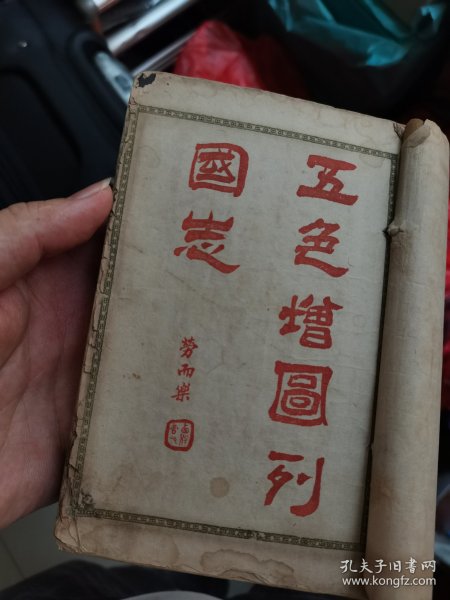 五色增圖列
國志
勞而樂
孔夫子旧书网
www.kongfz.com